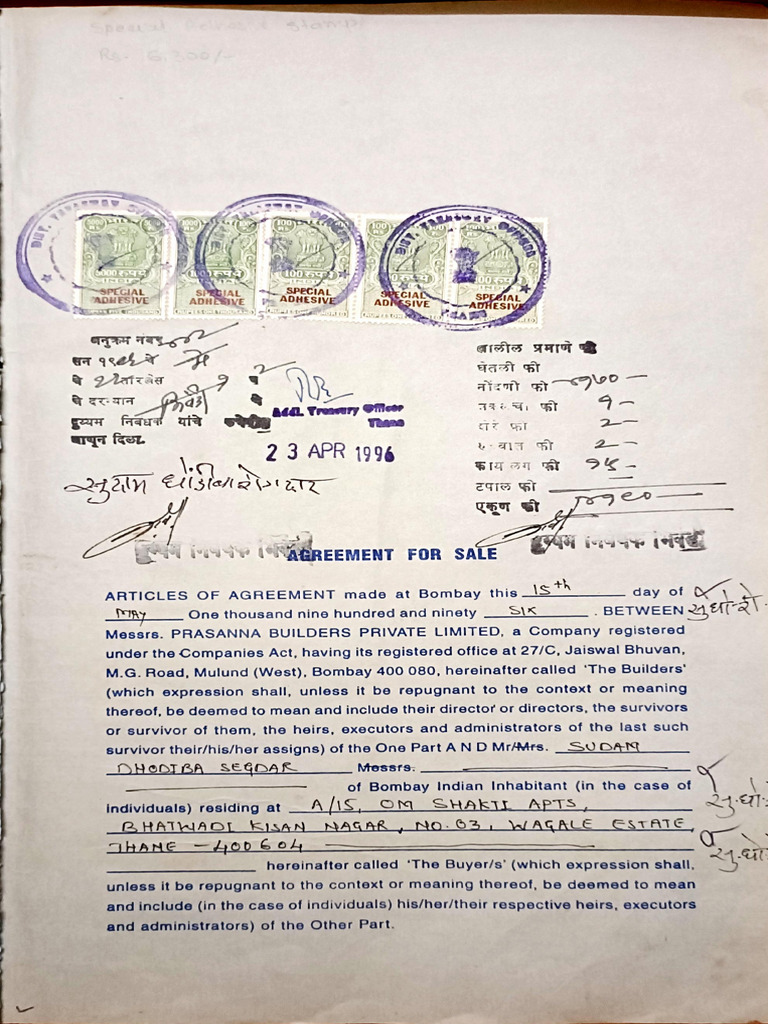 Special Adhesive Stamp
Rs. 6,300/-
DIST. TREASURY OFFICER
DIST. TREASURY OFFICER
DIST. TREASURY OFFICER
THANE
5000 रुपये
SPECIAL
ADHESIVE
1000 रुपये
SPECIAL
ADHESIVE
RUPEES ONE THOUSAND
100 रुपये
SPECIAL
ADHESIVE
SPECIAL
ADHESIVE
100 रुपये
SPECIAL
ADHESIVE
अनुक्रम नंबर
सन १९९६ चे मे
चे २२ तारखेस १ व २
चे दरम्यान भिवंडी चे
दुय्यम निबंधक यांचे कचेरीत
आणून दिला
Addl. Treasury Officer
Thane
23 APR 1996
खालील प्रमाणे फी
घेतली फी
नोंदणी फी
फी १-
फी २-
फी २-
फायलिंग फी १५-
टपाल फी
एकूण फी
सुदाम धोंडीबा शेगदार
दुय्यम निबंधक भिवंडी
दुय्यम निबंधक भिवंडी
AGREEMENT FOR SALE
ARTICLES OF AGREEMENT made at Bombay this 15th day of
MAY One thousand nine hundred and ninety SIX . BETWEEN
Messrs. PRASANNA BUILDERS PRIVATE LIMITED, a Company registered
under the Companies Act, having its registered office at 27/C, Jaiswal Bhuvan,
M.G. Road, Mulund (West), Bombay 400 080, hereinafter called 'The Builders'
(which expression shall, unless it be repugnant to the context or meaning
thereof, be deemed to mean and include their director or directors, the survivors
or survivor of them, the heirs, executors and administrators of the last such
survivor their/his/her assigns) of the One Part A N D Mr/Mrs. SUDAM
DHODIBA SEGDAR Messrs.
of Bombay Indian Inhabitant (in the case of
individuals) residing at A/15, OM SHAKTI APTS,
BHATWADI KISAN NAGAR, NO.03, WAGALE ESTATE,
THANE - 400604
hereinafter called 'The Buyer/s' (which expression shall,
unless it be repugnant to the context or meaning thereof, be deemed to mean
and include (in the case of individuals) his/her/their respective heirs, executors
and administrators) of the Other Part.